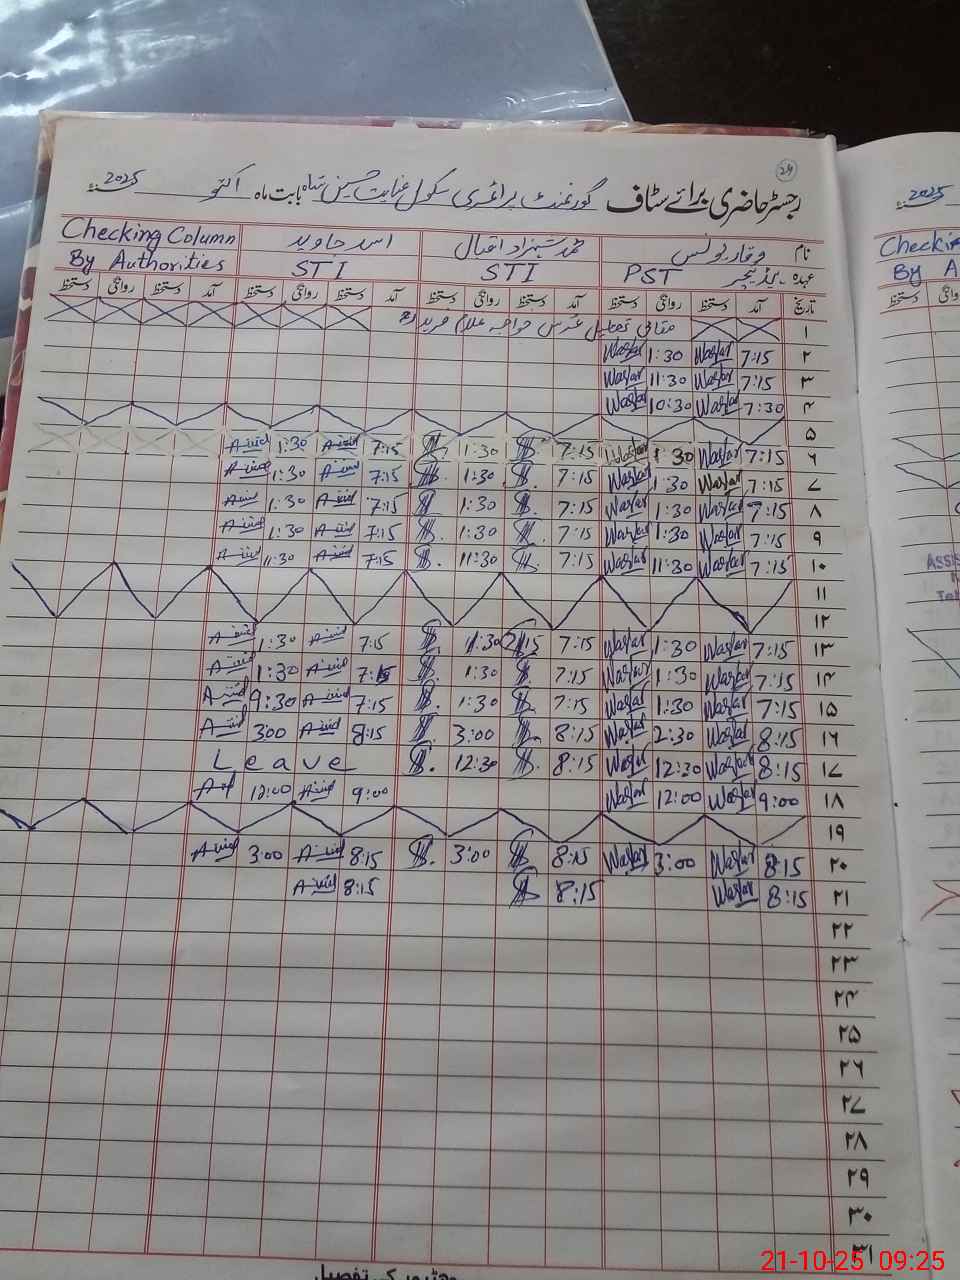 24
رجسٹر حاضری برائے سٹاف گورنمنٹ پرائمری سکول عنایت حسین شاہ بابت ماہ اکتوبر 2025
نام وقار یونس محمد شہزاد اقبال اسد جاوید Checking Column
عہدہ ہیڈ ٹیچر PST STI STI By Authorities
تاریخ آمد دستخط روانگی دستخط آمد دستخط روانگی دستخط آمد دستخط روانگی دستخط آمد دستخط روانگی دستخط
۱ مقامی تعطیل عرس خواجہ غلام فرید
۲ 7:15 Waqar 1:30 Waqar
۳ 7:15 Waqar 11:30 Waqar
۴ 7:30 Waqar 10:30 Waqar
۵
۶ 7:15 Waqar 1:30 Waqar 7:15 1:30 7:15 1:30
۷ 7:15 Waqar 1:30 Waqar 7:15 1:30 7:15 1:30
۸ 7:15 Waqar 1:30 Waqar 7:15 1:30 7:15 1:30
۹ 7:15 Waqar 1:30 Waqar 7:15 1:30 7:15 1:30
۱۰ 7:15 Waqar 11:30 Waqar 7:15 11:30 7:15 11:30
۱۱
۱۲
۱۳ 7:15 Waqar 1:30 Waqar 7:15 1:30 7:15 1:30
۱۴ 7:15 Waqar 1:30 Waqar 7:15 1:30 7:15 1:30
۱۵ 7:15 Waqar 1:30 Waqar 7:15 1:30 7:15 9:30
۱۶ 8:15 Waqar 2:30 Waqar 8:15 3:00 8:15 3:00
۱۷ 8:15 Waqar 12:30 Waqar 8:15 12:30 Leave
۱۸ 9:00 Waqar 12:00 Waqar 9:00 12:00
۱۹
۲۰ 8:15 Waqar 3:00 Waqar 8:15 3:00 8:15 3:00
۲۱ 8:15 Waqar 8:15 8:15
۲۲
۲۳
۲۴
۲۵
۲۶
۲۷
۲۸
۲۹
۳۰
۳۱
چھٹیوں کی تفصیل
2025
Checki
By A
دستخط
ASSIS
21-10-25 09:25